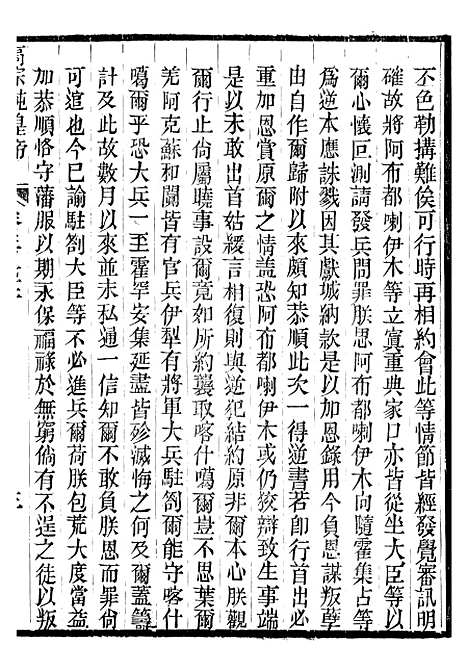 不色勒搆難俟可行時再相約會此等情節皆經發覺審訊明
確故將阿布都喇伊木等立寘重典家口亦皆從坐大臣等以
爾心懷叵測請發兵問罪朕思阿布都喇伊木向隨霍集占等
爲逆本應誅戮因其獻城納款是以加恩錄用今負恩謀叛孽
由自作爾歸附以來頗知恭順此次一得逆書若卽奏出必
重加恩賞原爾之情蓋恐阿布都喇伊木或仍狡辯致生事端
是以未敢出首姑緩言相復則與逆犯結約原非爾本心朕觀
爾行止尙屬曉事設爾竟如所約襲取喀什噶爾豈不思葉爾
羌阿克蘇和闐皆有官兵伊犁有將軍大兵駐劄爾能守喀什
噶爾乎恐大兵一至霍罕安集延盡皆殄滅悔之何及爾蓋籌
計及此故數月以來並未私通一信知爾不敢負朕恩而罪尙
可逭也今已諭駐劄大臣等不必進兵爾荷朕包荒大度當益
加恭順恪守藩服以期永保福祿於無窮倘有不逞之徒以叛
高宗純皇帝
三